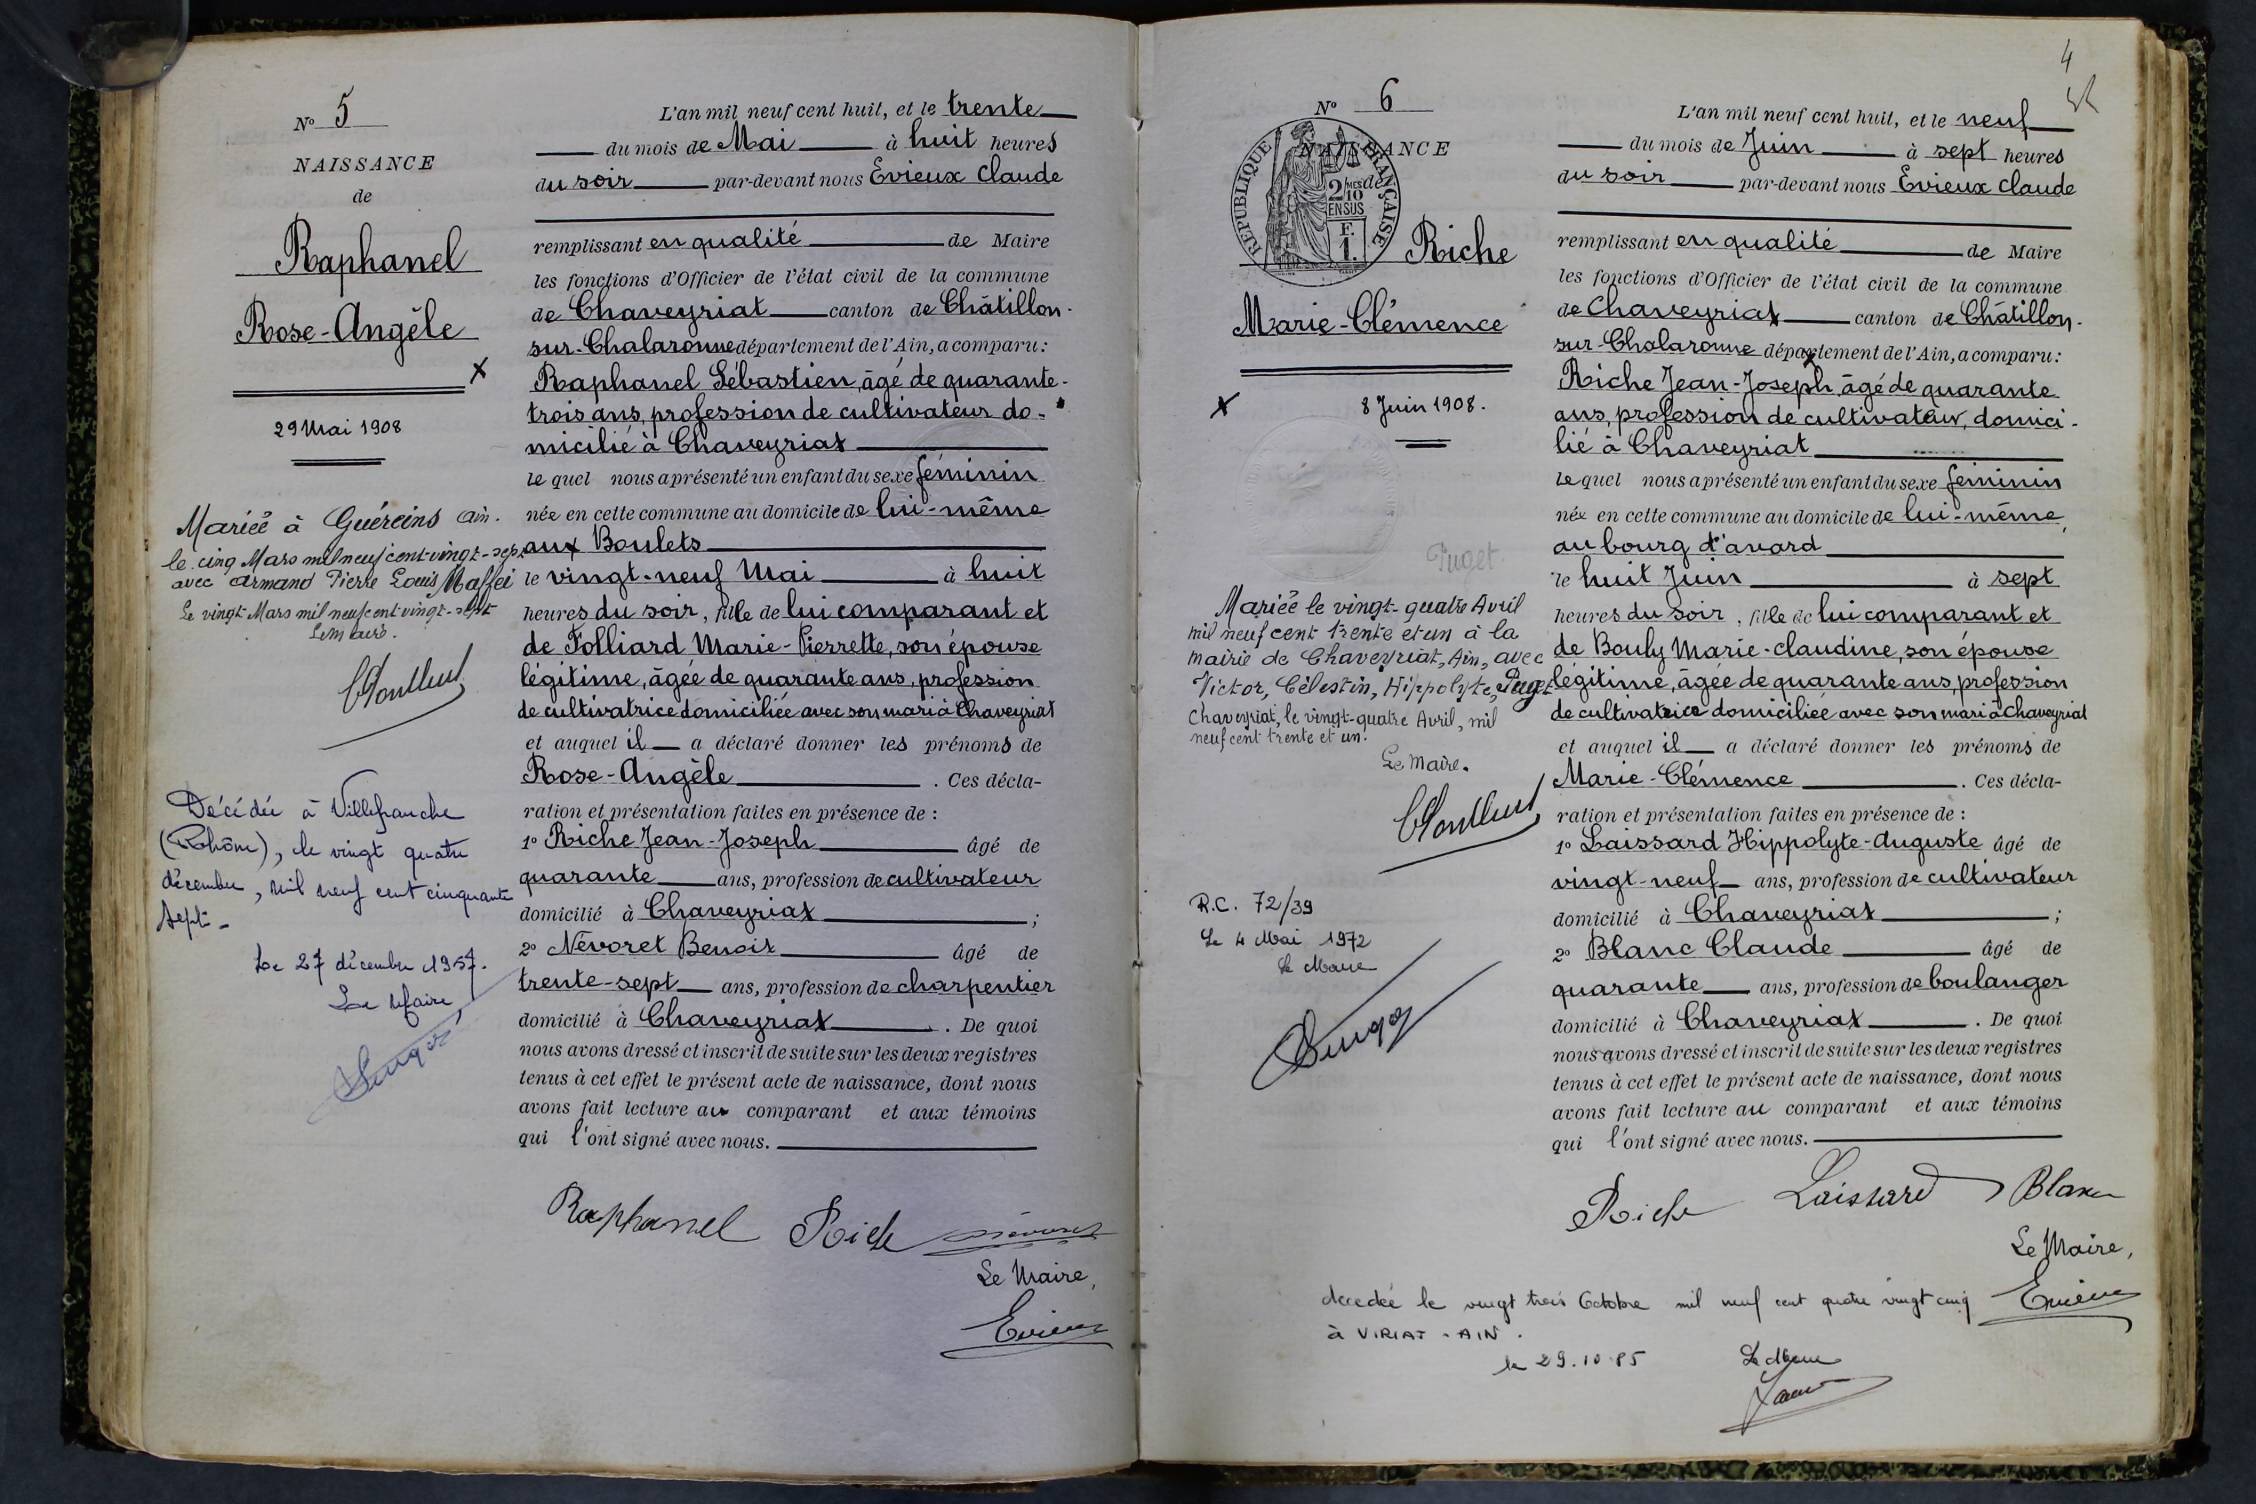 N° 5
NAISSANCE
de
Raphanel
Rose-Angèle
29 Mai 1908
Mariée à Guéreins Ain.
le cinq Mars mil neuf cent-vingt-sept
avec Armand Pierre Louis Maffei
Le vingt Mars mil neuf cent-vingt-sept
Le Maire.
Décédée à Villefranche
(Rhône), le vingt quatre
décembre, mil neuf cent cinquante
sept-
Le 27 décembre 1957.
Le Maire
L'an mil neuf cent huit, et le trente
du mois de Mai à huit heures
du soir par-devant nous Evieux Claude
remplissant en qualité de Maire
les fonctions d'Officier de l'état civil de la commune
de Chaveyriat canton de Châtillon-
sur-Chalaronne département de l'Ain, a comparu:
Raphanel Sébastien, âgé de quarante-
trois ans, profession de cultivateur do-
micilié à Chaveyriat
lequel nous a présenté un enfant du sexe féminin
née en cette commune au domicile de lui-même
aux Boulets
le vingt-neuf Mai à huit
heures du soir, fille de lui comparant et
de Folliard Marie-Pierrette, son épouse
légitime, âgée de quarante ans, profession
de cultivatrice domiciliée avec son mari à Chaveyriat
et auquel il a déclaré donner les prénoms de
Rose-Angèle. Ces décla-
ration et présentation faites en présence de :
1° Riche Jean-Joseph âgé de
quarante ans, profession de cultivateur
domicilié à Chaveyriat ;
2° Névoret Benoit âgé de
trente-sept ans, profession de charpentier
domicilié à Chaveyriat. De quoi
nous avons dressé et inscrit de suite sur les deux registres
tenus à cet effet le présent acte de naissance, dont nous
avons fait lecture au comparant et aux témoins
qui l'ont signé avec nous.
Raphanel Riche Névoret
Le Maire,
Evieux
4
N° 6
NAISSANCE
de
REPUBLIQUE FRANÇAISE
2/10 MES
EN SUS
F.
1.
Riche
Marie-Clémence
8 Juin 1908.
Puget
Mariée le vingt-quatre Avril
mil neuf cent trente et un à la
mairie de Chaveyriat, Ain, avec
Victor, Célestin, Hippolyte, Puget
Chaveyriat, le vingt-quatre Avril, mil
neuf cent trente et un.
Le Maire.
R.C. 72/39
Le 4 Mai 1972
Le Maire
L'an mil neuf cent huit, et le neuf
du mois de Juin à sept heures
du soir par-devant nous Evieux Claude
remplissant en qualité de Maire
les fonctions d'Officier de l'état civil de la commune
de Chaveyriat canton de Châtillon-
sur-Chalaronne département de l'Ain, a comparu:
Riche Jean-Joseph âgé de quarante
ans, profession de cultivateur, domici-
lié à Chaveyriat
lequel nous a présenté un enfant du sexe féminin
née en cette commune au domicile de lui-même,
au bourg d'avard
le huit Juin à sept
heures du soir, fille de lui comparant et
de Bouly Marie-Claudine, son épouse
légitime, âgée de quarante ans, profession
de cultivatrice domiciliée avec son mari à Chaveyriat
et auquel il a déclaré donner les prénoms de
Marie-Clémence. Ces décla-
ration et présentation faites en présence de :
1° Laissard Hippolyte-Auguste âgé de
vingt-neuf ans, profession de cultivateur
domicilié à Chaveyriat ;
2° Blanc Claude âgé de
quarante ans, profession de boulanger
domicilié à Chaveyriat. De quoi
nous avons dressé et inscrit de suite sur les deux registres
tenus à cet effet le présent acte de naissance, dont nous
avons fait lecture au comparant et aux témoins
qui l'ont signé avec nous.
Riche Laissard Blanc
Le Maire,
Evieux
decedée le vingt trois Octobre mil neuf cent quatre vingt cinq
à VIRIAT - AIN.
le 29.10.85 Le Maire